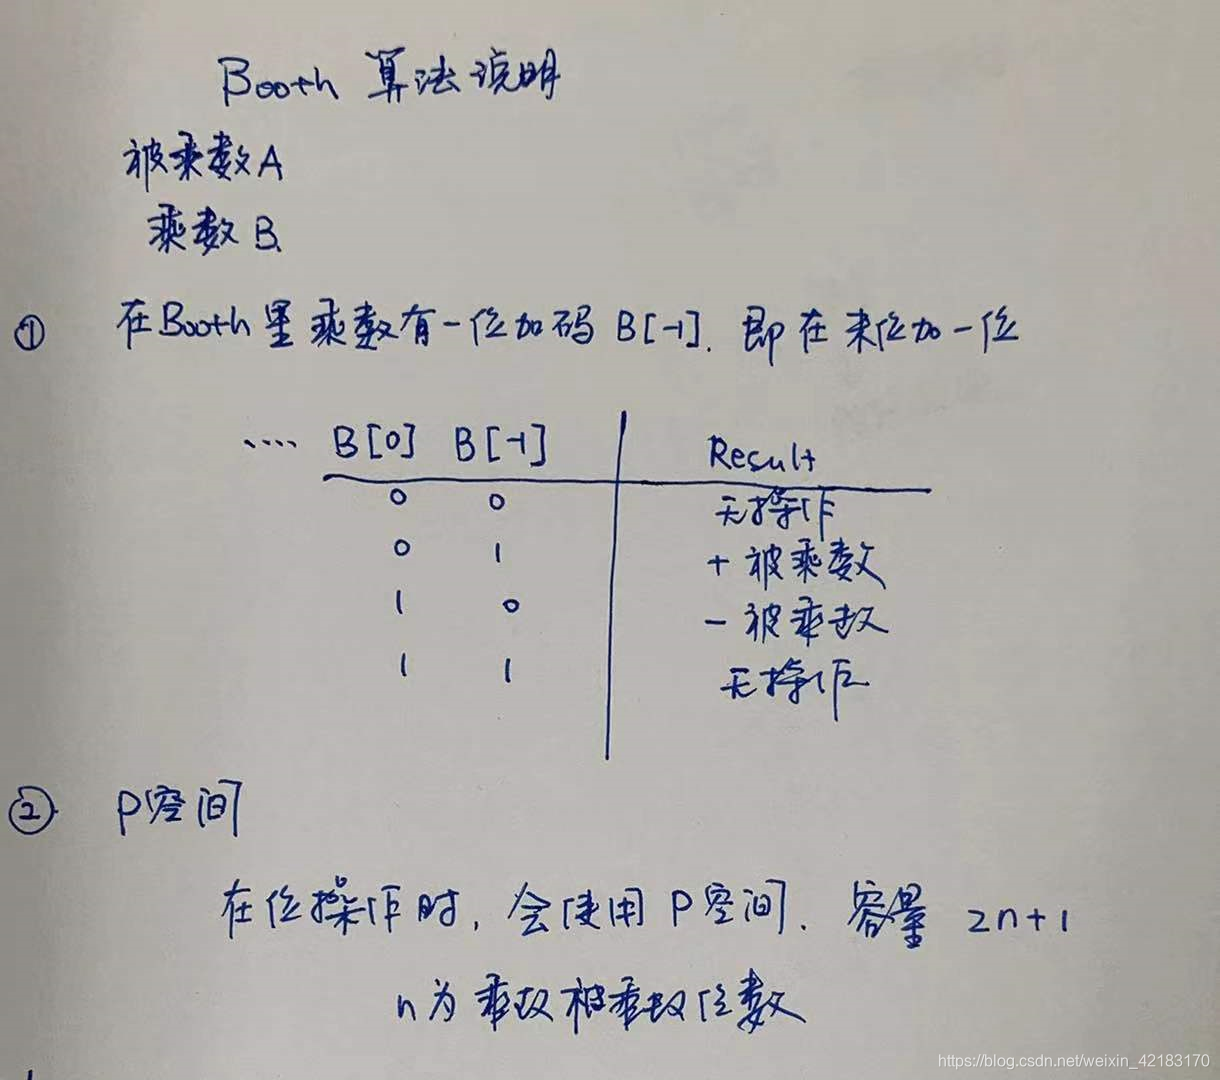 Booth 算法说明
被乘数A
乘数B.
① 在Booth里乘数有一位加码 B[-1]. 即在末位加一位
.... B[0] B[-1] Result
0 0 无操作
0 1 + 被乘数
1 0 - 被乘数
1 1 无操作
② P空间
在位操作时, 会使用 P空间. 容量 2n+1
n为乘数被乘数位数
https://blog.csdn.net/weixin_42183170